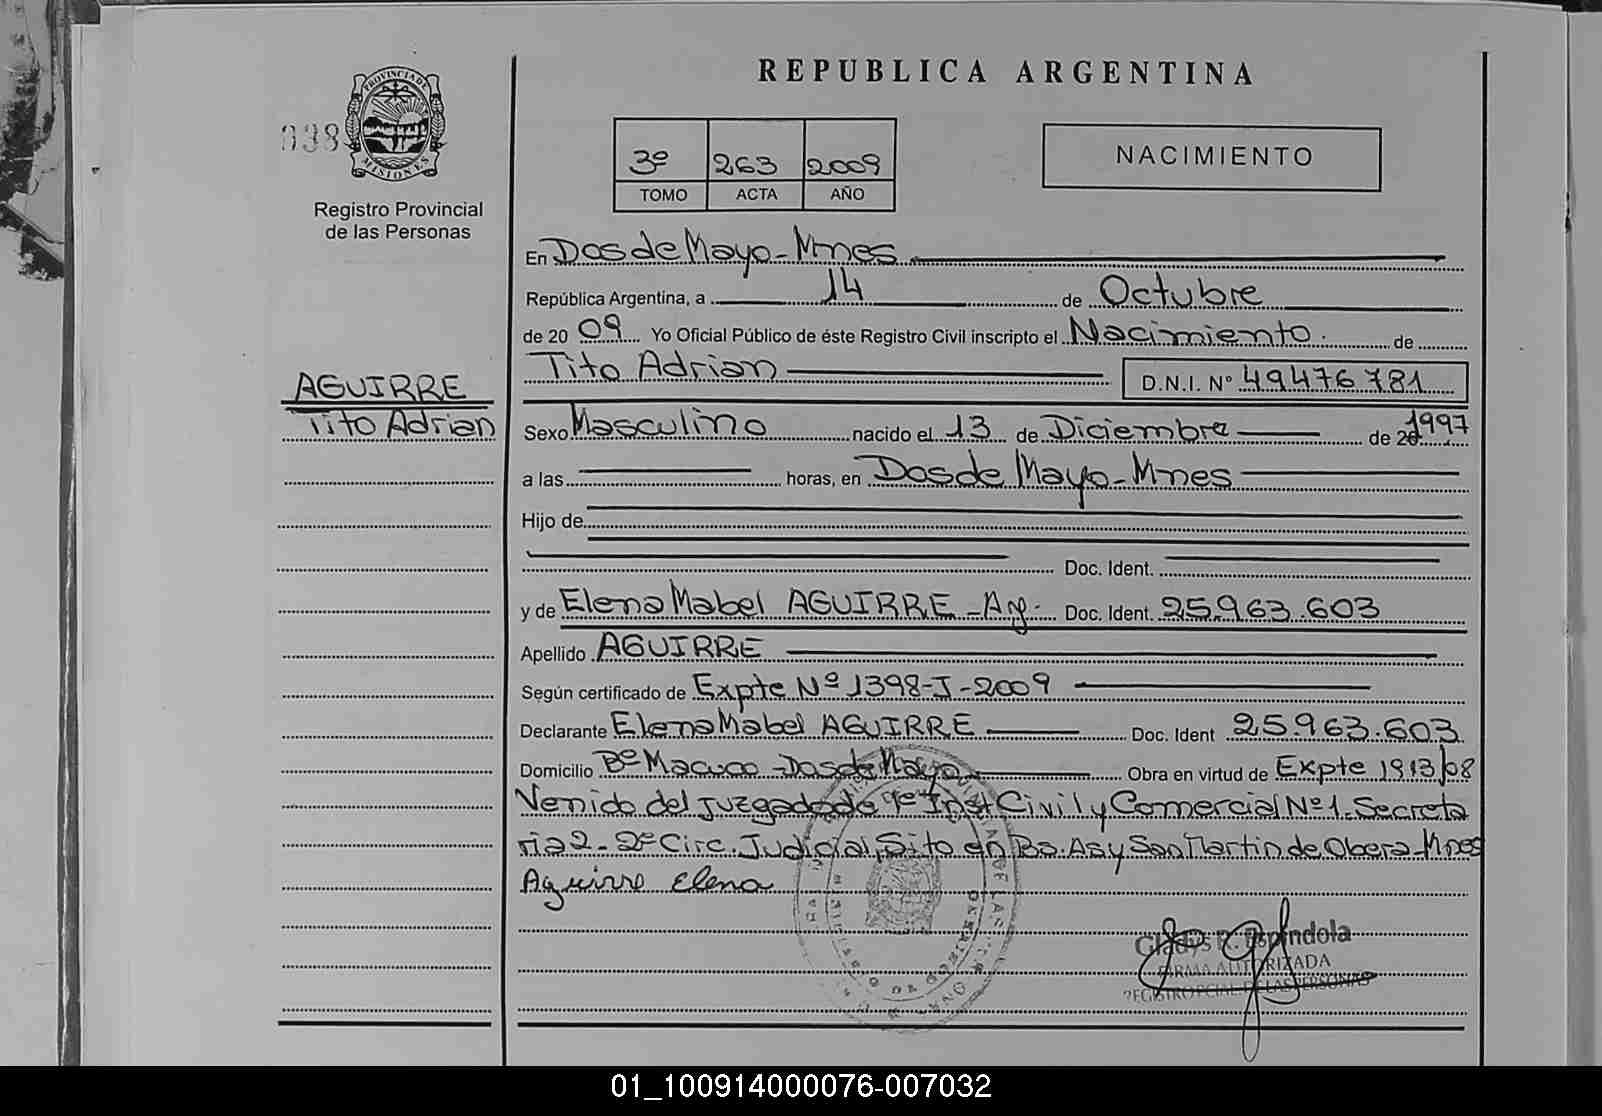 REPUBLICA ARGENTINA
038
PROVINCIA DE
MISIONES
Registro Provincial
de las Personas
3º 263 2009
TOMO ACTA AÑO
NACIMIENTO
En Dos de Mayo-Mnes
República Argentina, a 14 de Octubre
de 20 09 Yo Oficial Público de éste Registro Civil inscripto el Nacimiento de
Tito Adrian D.N.I. Nº 49476781
AGUIRRE
Tito Adrian
Sexo Masculino nacido el 13 de Diciembre de 1997
a las horas, en Dos de Mayo-Mnes
Hijo de
Doc. Ident.
y de Elena Mabel AGUIRRE-Arg- Doc. Ident. 25.963.603
Apellido AGUIRRE
Según certificado de Expte Nº 1398-J-2009
Declarante Elena Mabel AGUIRRE Doc. Ident 25.963.603
Domicilio Bº Macuco-Dos de Mayo Obra en virtud de Expte 1913/08
Venido del Juzgado de 1º Inst Civil y Comercial Nº1. Secreta
ria 2-2º Circ. Judicial, Sito en Bs. As y San Martin de Obera-Mnes
Aguirre Elena
Gladys R. Espindola
FIRMA AUTORIZADA
REGISTRO PCIAL. DE LAS PERSONAS
01_100914000076-007032